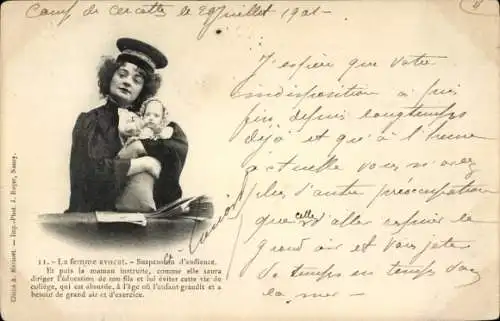 Camp de Cercottes le 29 Juillet 1901 -
J'espère que votre
indisposition a pris
fin depuis longtemps
déjà et qu'à l'heure
actuelle vous n'avez
plus d'autre préoccupation
que celle d'aller respirer le
grand air et vous jeter
de temps en temps dans
la mer -
11. - La femme avocat. - Suspension d'audience.
Et puis la maman instruite, comme elle saura
diriger l'éducation de son fils et lui éviter cette vie de
collège, qui est absurde, à l'âge où l'enfant grandit et a
besoin de grand air et d'exercice.
Cliché A. Bergeret. - Imp.-Phot. J. Royer, Nancy.